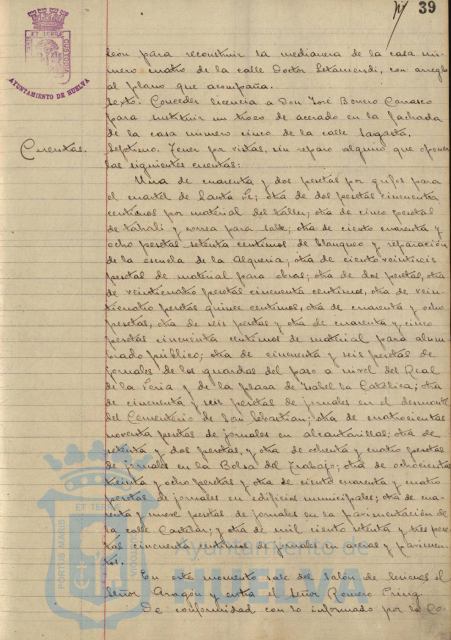 39
AYUNTAMIENTO DE HUELVA
león para reconstruir la medianera de la casa nú-
mero cuatro de la calle Doctor Letamendi, con arreglo
al plano que acompaña.
Sexto. Conceder licencia a Don José Borrero Carrasco
para sustituir un trozo de acerado en la fachada
de la casa número cinco de la calle Sagasta.
Cuentas.
Séptimo. Tener por vistas, sin reparo alguno que oponer
las siguientes cuentas:
Una de cuarenta y dos pesetas por grifos para
el cuartel de Santa Fe; otra de dos pesetas cincuenta
centimos por material del taller; otra de cinco pesetas
de tahalí y correa para sable; otra de ciento cuarenta y
ocho pesetas setenta centimos de blanqueo y reparación
de la escuela de la Alquería; otra de ciento veintiseis
pesetas de material para obras; otra de dos pesetas, otra
de veinticuatro pesetas cincuenta centimos, otra de vein-
ticuatro pesetas quince centimos, otra de cuarenta y ocho
pesetas, otra de seis pesetas y otra de cuarenta y cinco
pesetas cincuenta centimos de material para alum-
brado público; otra de cincuenta y seis pesetas de
jornales de los guardas del paso a nivel del Real
de la Feria y de la plaza de Isabel la Católica; otra
de cincuenta y seis pesetas de jornales en el desmonte
del Cementerio de San Sebastian; otra de cuatrocientas
noventa pesetas de jornales en alcantarillas; otra de
setenta y dos pesetas, y otra de ochenta y cuatro pesetas
de jornales en la Bolsa del Trabajo; otra de ochocientas
treinta y ocho pesetas y otra de ciento cuarenta y cuatro
pesetas de jornales en edificios municipales; otra de cua-
renta y nueve pesetas de jornales en la pavimentación de
la calle Castelar; y otra de mil ciento setenta y tres pese-
tas cincuenta centimos de jornales en aceras y pavimen-
tos.
En este momento sale del Salón de Sesiones el
Señor Aragón y entra el Señor Romero
De conformidad con lo informado por la Co-
Ayuntamiento de
HUELVA